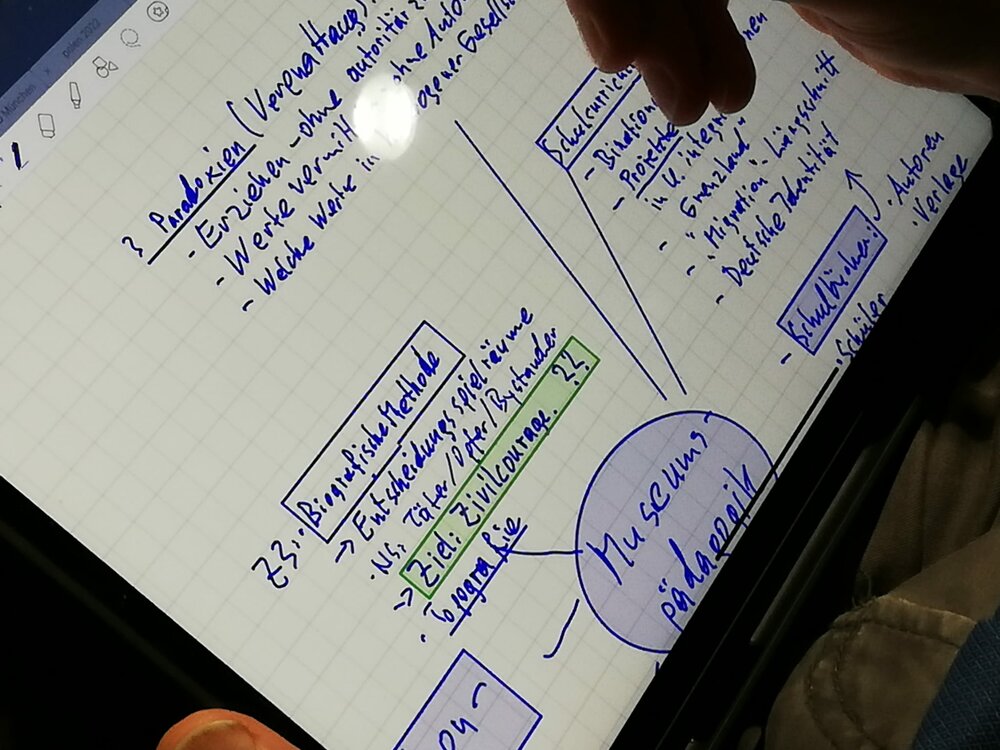 ostern 2022
München
3 Paradoxien (Verwaltung)
- Erziehen - ohne autoritär
- Werte vermitt ohne Auto
- Welche Werte in ogener Gesell
Schulcurricu
- Bination
Projekte nen
in U. integri
- "Grenzland"
- "Migration" - Längsschnitt
- Deutsche Identität
- Schulbücher:
· Autoren
· Verlage
· Schüler
ZB.: Biografische Methode
→ Entscheidungsspielräume
· NS: Täter/Opfer/Bystander
→ Ziel: Zivilcourage. ??
· Topografie
Museums-
pädagogik